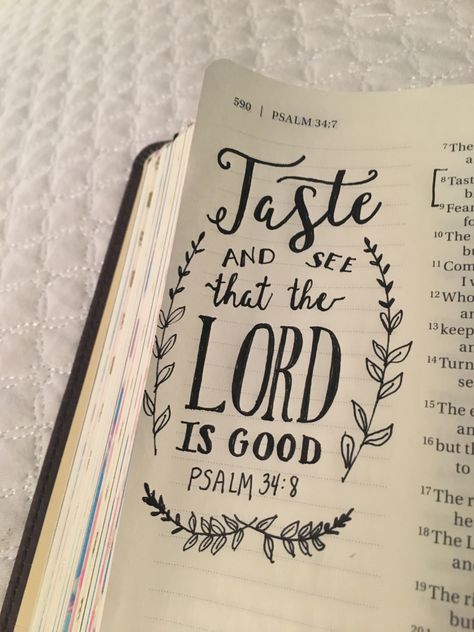 590 | PSALM 34:7
Taste
AND SEE
that the
LORD
IS GOOD
PSALM 34:8
7 The
a
8 Tast
b
9 Fear
fo
10 The
bu
11 Com
I w
12 Who
an
13 keep
an
14 Turn
se
15 The e
an
16 but th
to
17 The r
he
18 The L
and
19 The ri
but